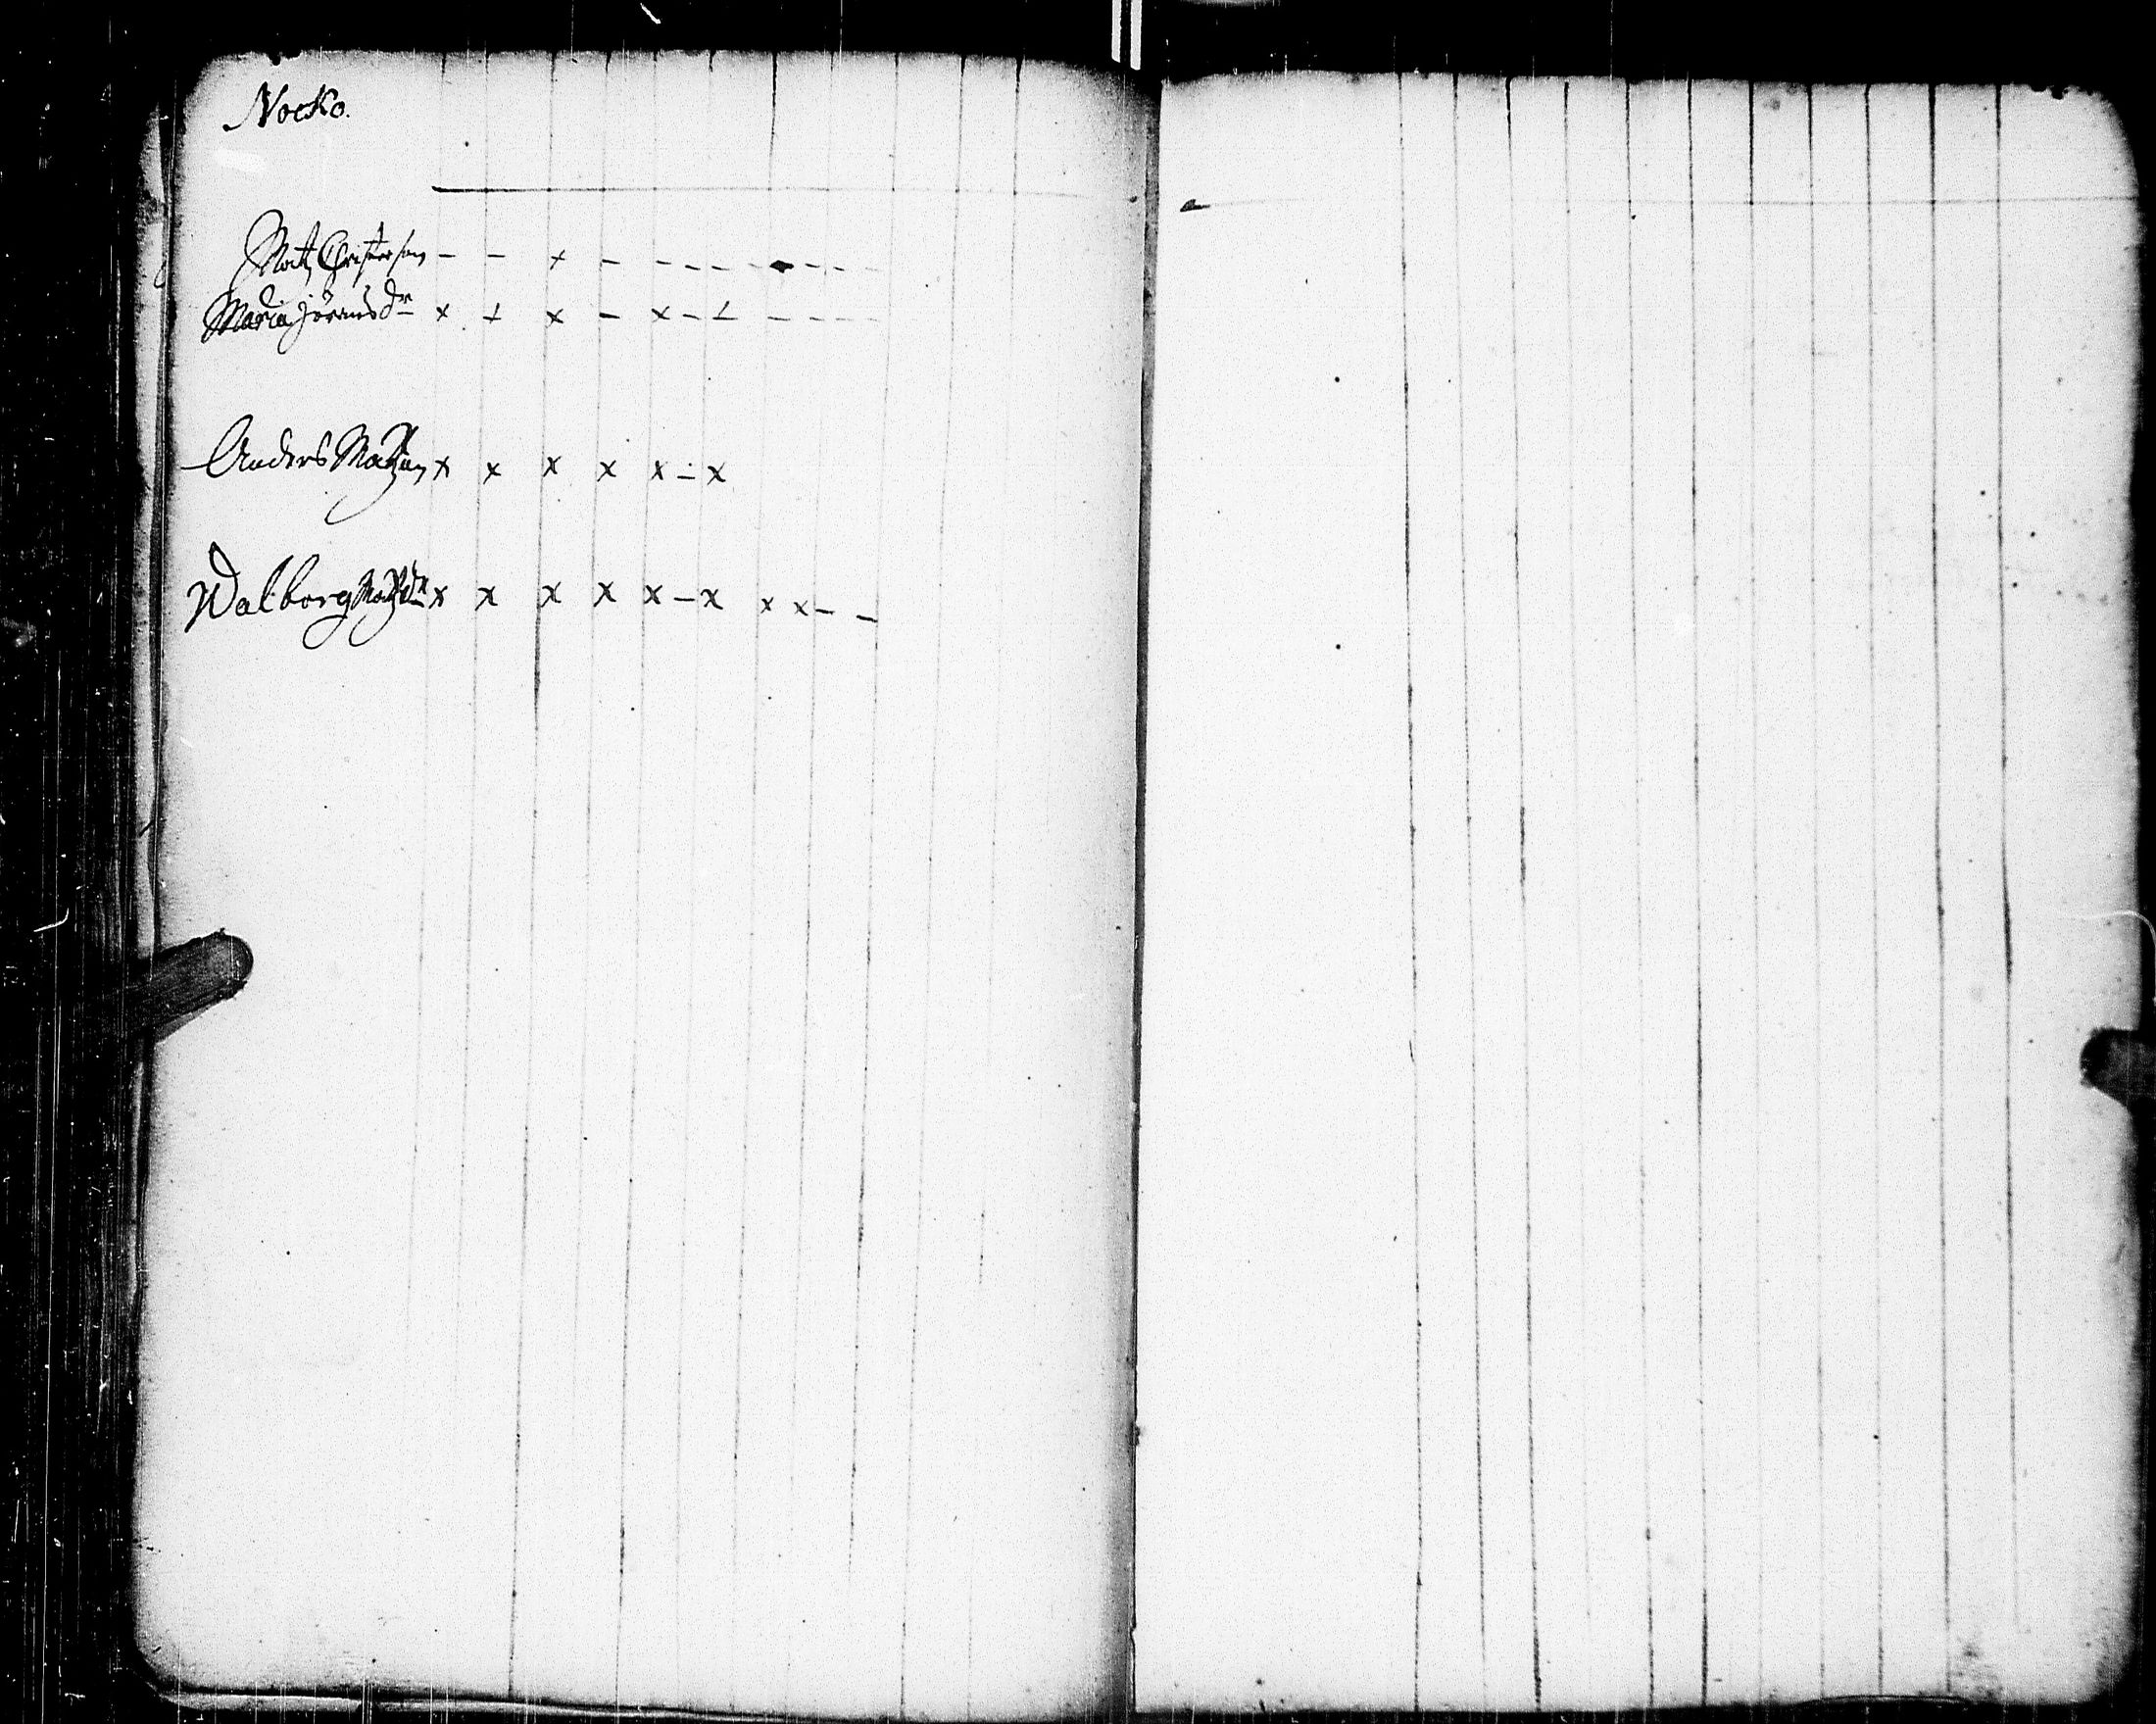 Nocko.
Matz Christersson – – x – – – – – – –
Maria Jörensdr x x x – x – x – – – –
Anders Matzson x x x x x – x
Walborg Matzdr x x x x x – x x x – –